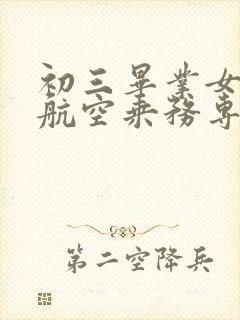 初三畢業女
航空乘務專
第二空降兵